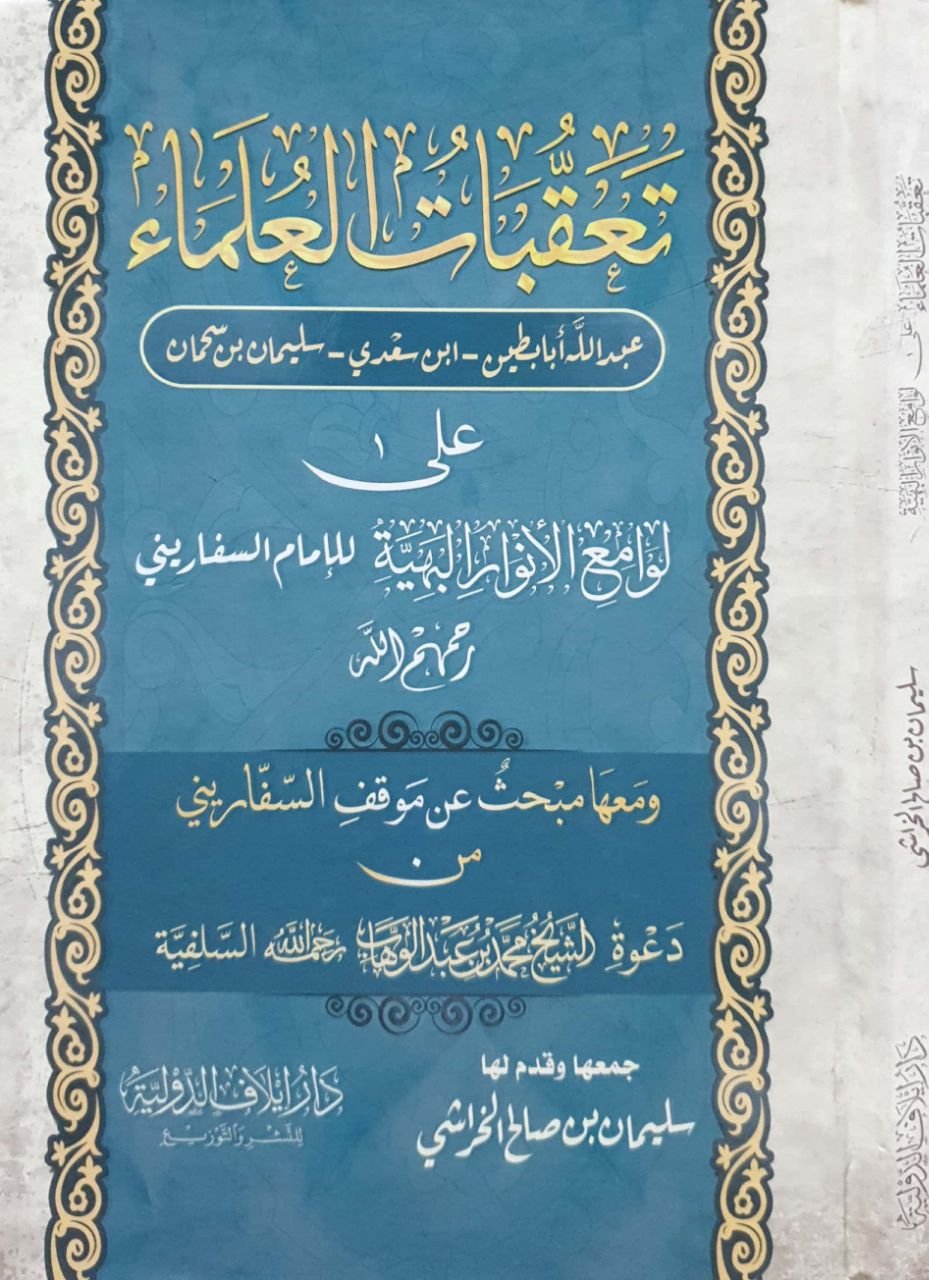 تَعَقُّبَاتُ العُلَمَاء
عبد الله أبا بطين - ابن سعدي - سليمان بن سحمان
على
لَوَامِعِ الأَنْوَارِ البَهِيَّةِ للإمام السفاريني
رحمهم الله
وَمَعَهَا مَبْحَثٌ عن مَوقفِ السَّفَّاريني
من
دَعْوةِ الشَّيْخِ مُحَمَّدِ بْنِ عَبْدِ الوَهَّابِ رَحِمَهُ اللهُ السَّلَفِيَّة
جمعها وقدم لها
سليمان بن صالح الخراشي
دَارُ إِيلَافَ الدَّوْلِيَّة
لِلنَّشْرِ وَالتَّوْزِيع
تَعَقُّبَاتُ العُلَمَاء على لَوَامِعِ الأَنْوَارِ البَهِيَّةِ
سليمان بن صالح الخراشي
دَارُ إِيلَافَ الدَّوْلِيَّة